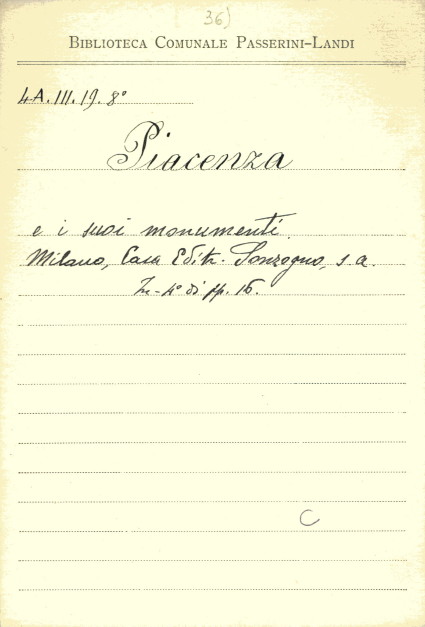 36)
BIBLIOTECA COMUNALE PASSERINI-LANDI
4A.III.19.8°
Piacenza
e i suoi monumenti.
Milano, Casa Editr. Sonzogno, s a.
In-4° di pp. 16.
C